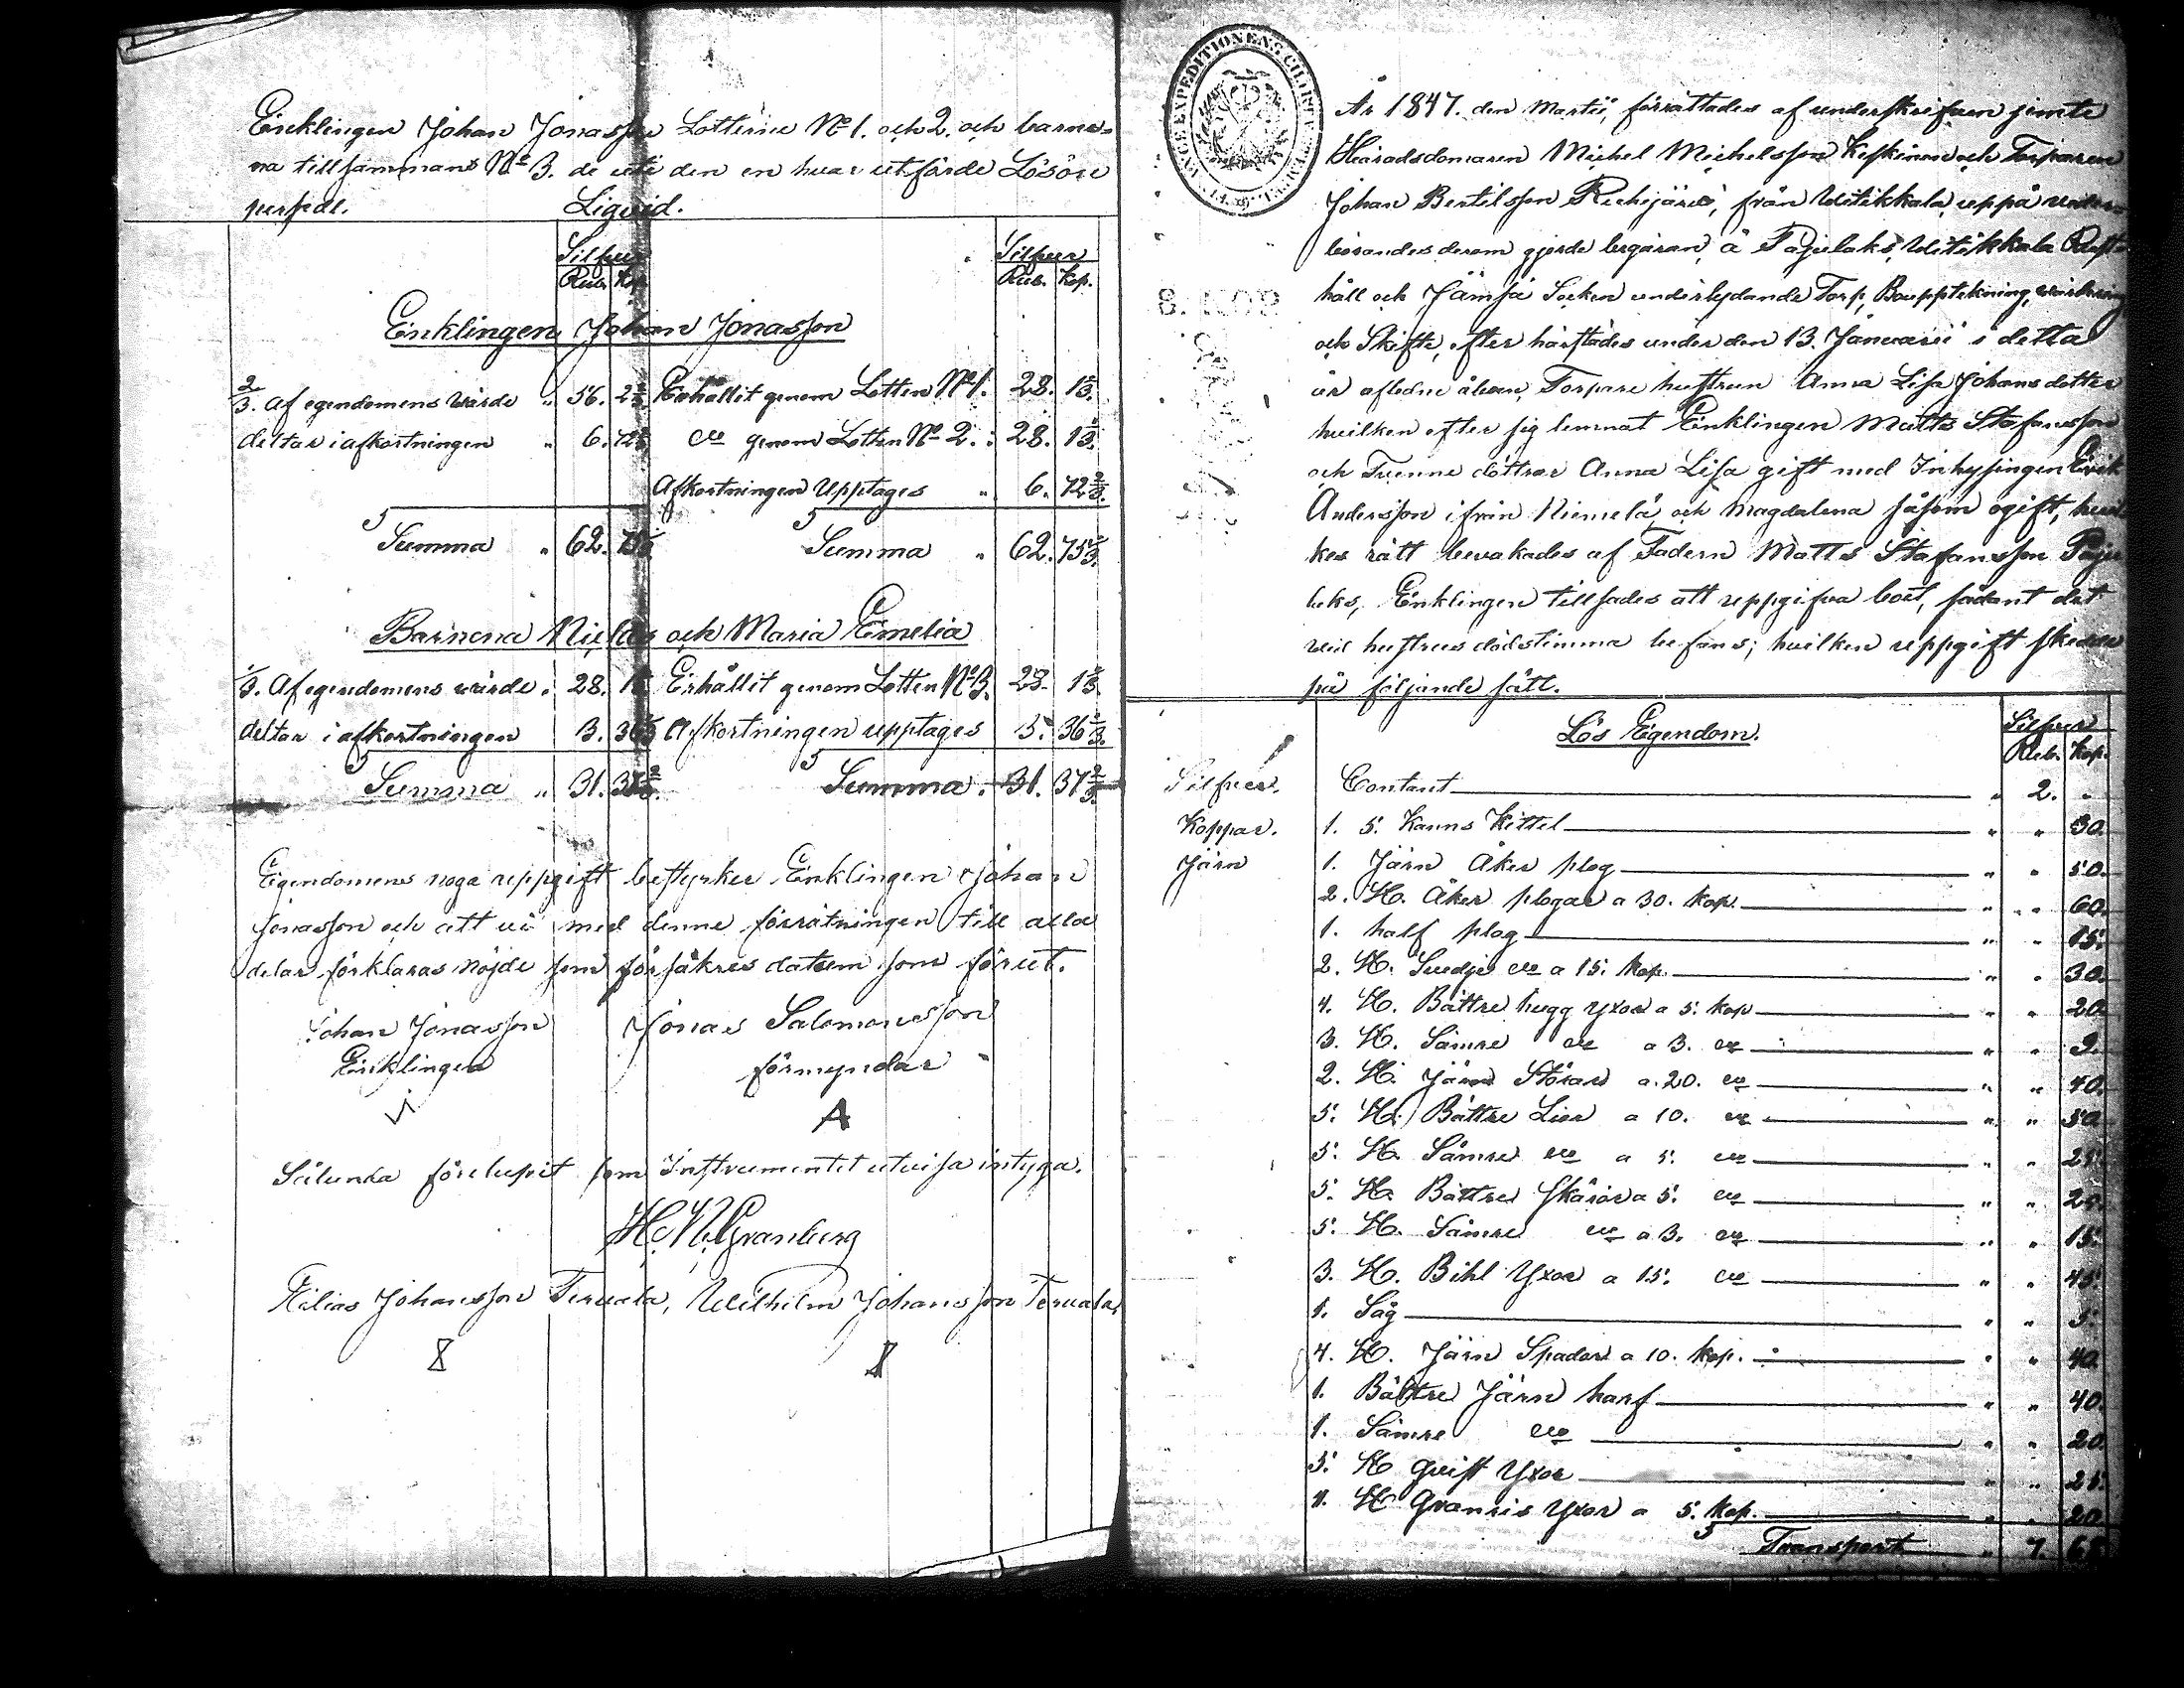 Encklingen Johan Jonasson Lotterne No 1. och 2. och barne-
na tillsammans No 3. de uti den en hvar utförde Lösöre
persedl.
Liqvid.
Silfver
Rub. Kop.
Silfver
Rub. Kop.
Enklingen Johan Jonasson
2/3. af egendomens värde " 56. 2 2/3. Erhållit genom Lotten No 1. 28. 1 1/3.
deltar i afkortningen " 6. 72 2/3. do genom Lotten No 2. " 28. 1 1/3.
Afkortningen Upptages " 6. 72 2/3.
Summa " 62. 75 1/3. Summa " 62. 75 1/3.
Barnena Niclas och Maria Emelia
1/3. Af egendomens värde " 28. 1 1/3. Erhållit genom Lotten No 3. 28. 1 1/3.
deltar i afkortningen 3. 36 1/3. Afkortningen upptages 3. 36 1/3.
Summa " 31. 37 2/3. Summa " 31. 37 2/3.
Egendomens noga uppgift bestyrker Enklingen Johan
Jonasson och att vi med denne förrätningen till alla
delar förklaras nöjde som försäkres datum som förut.
Johan Jonasson Jonas Salomonsson
Enklingen förmyndar
A
Sålunda förelupit som Instrumentet utvisa intyga.
H. N. Granberg
Elias Johansson Tervala, Wilhelm Johansson Tervala,
År 1847. den Martii, förrättades af underskrefven jemte
Häradsdomaren Michel Michelsson Keskinen och Torparen
Johan Bertilsson Riehijärvi, från Uitikkala, uppå veder-
börandes derom gjorde begäran, å Pajulaks, Uitikkala Rust-
håll och Jämsä Socken underlydande Torp, Bouppteckning, värdering
och Skifte, efter härstädes under den 13. Januarii i detta
år afledne åboen, Torpare hustrun Anna Lisa Johansdotter
hvilken efter sig lemnat Enklingen Matts Stafansson
och Tvenne döttrar Anna Lisa gift med Inhysingen Erik
Andersson ifrån Niemelä, och Magdalena såsom ogift, hvil-
kes rätt bevakades af Fadern Matts Stafansson Paju-
laks, Enklingen tillsades att uppgifva boet, sådant det
vid hustrus dödstimma befans; hvilken uppgift skedde
på följande sätt.
Lös Egendom.
Silfver
Rub. Kop.
Silfver. Contant " 2. "
Koppar. 1. 5. Kanns Kittel " " 30.
Järn 1. Järn Åker plog " " 50.
2. St. Åker plogar a 30. kop. " " 60.
1. half plog " " 15.
2. St. Svedje do a 15. kop. " " 30.
4. St. Bättre hugg Yxor a 5. kop " " 20.
3. St. Sämre do a 3. do " " 9.
2. St. Järn Störar a. 20. do " " 40.
5. St. Bättre Liar a 10. do " " 50.
5. St. Sämre do a 5. do " " 25.
5. St. Bättre Skäror a 5. do " " 25.
5. St. Sämre do a 3. do " " 15.
3. St. Bihl Yxor a 15. do " " 45.
1. Såg " " 5.
4. St. Järn Spadar a 10. kop. " " 40.
1. Bättre Järn harf " " 40.
1. Sämre do " " 20.
5. St Qvist Yxor " " 25.
4. St Yxor a 5. kop. " " 20.
Transport " 7.